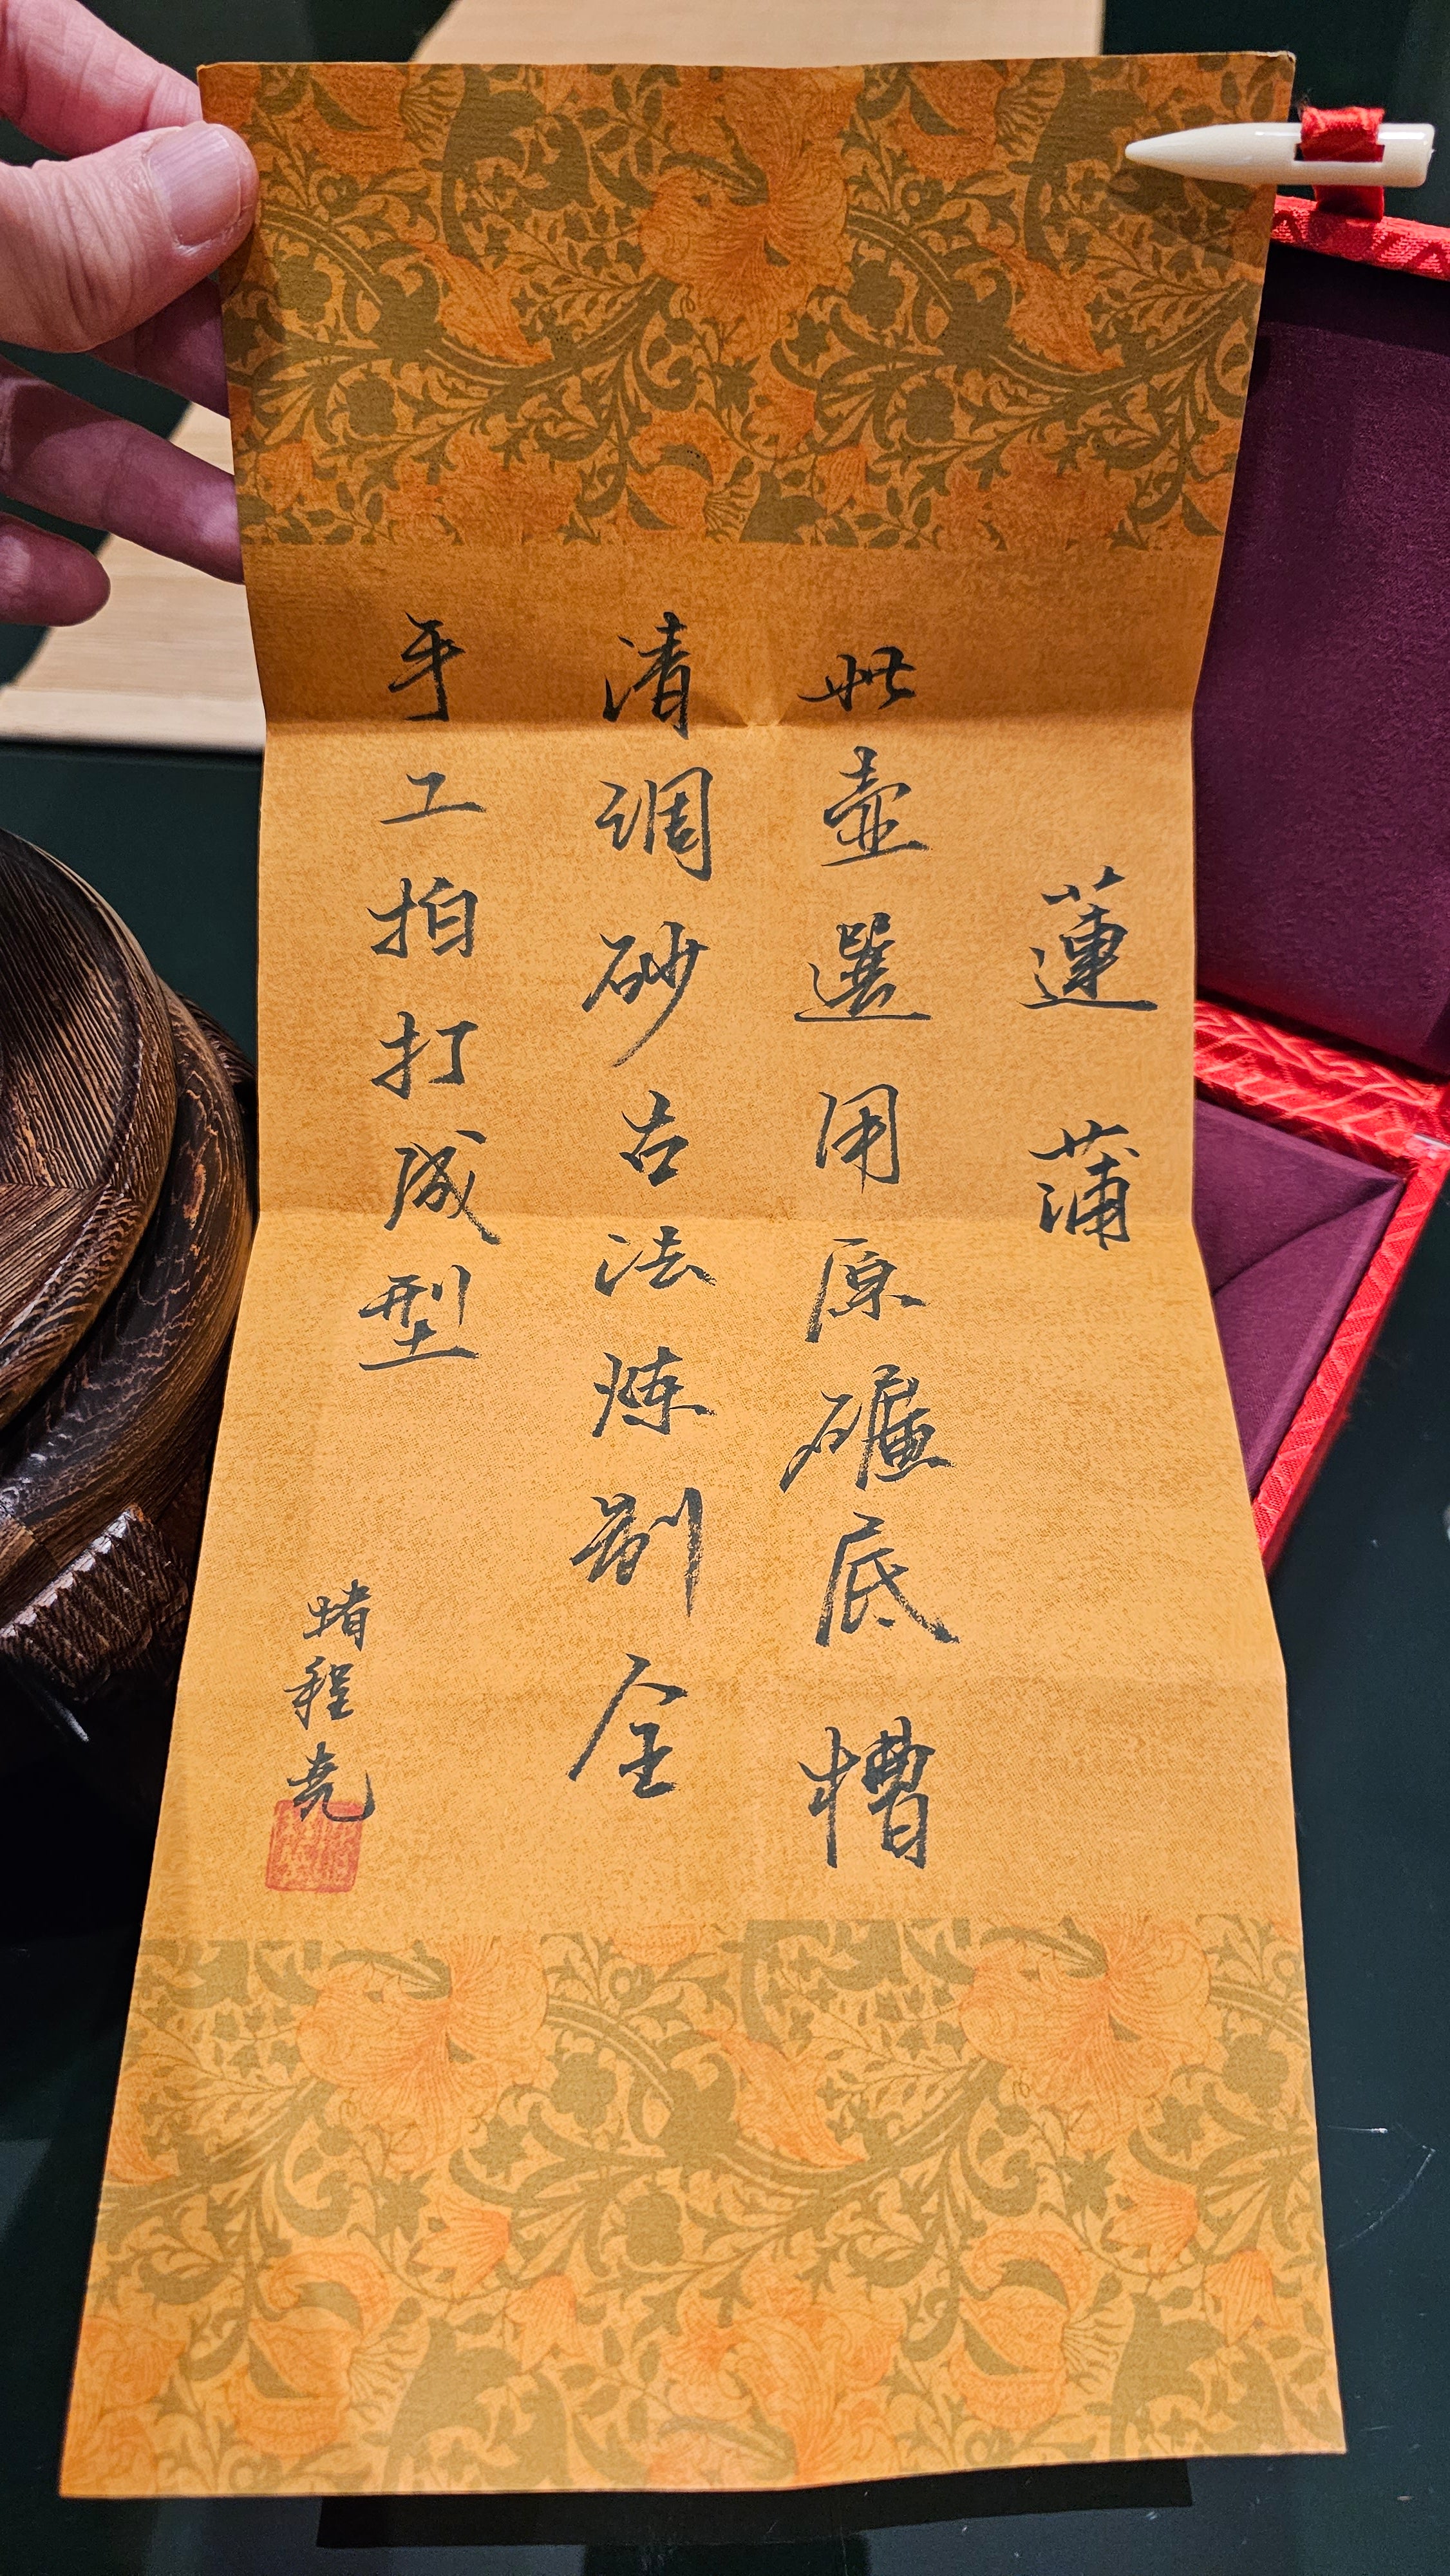 蓮蒲
此壺選用原礦底槽
清调砂古法炼制全
手工拍打成型
堵程尧